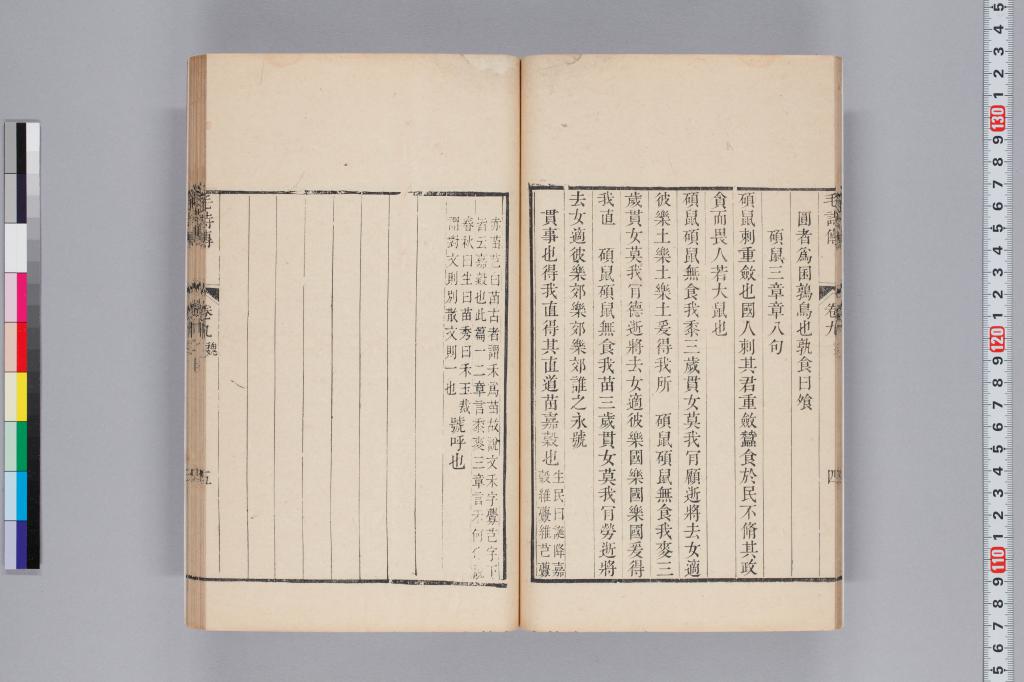 毛詩傳 卷九 四
圓者爲囷鶉鳥也孰食曰飧
碩鼠三章章八句
碩鼠刺重斂也國人刺其君重斂蠶食於民不脩其政
貪而畏人若大鼠也
碩鼠碩鼠無食我黍三歲貫女莫我肎顧逝將去女適
彼樂土樂土樂土爰得我所 碩鼠碩鼠無食我麥三
歲貫女莫我肎德逝將去女適彼樂國樂國樂國爰得
我直 碩鼠碩鼠無食我苗三歲貫女莫我肎勞逝將
去女適彼樂郊樂郊樂郊誰之永號
貫事也得我直得其直道苗嘉穀也
生民曰誕降嘉
穀維虋維芑虋
赤苗芑曰苗古者謂禾爲苗故說文禾字虋芑字下
皆云嘉穀也此篇一二章言黍麥三章言禾何
春秋曰生曰苗秀曰禾玉裁
謂對文則別散文則一也
號呼也
毛詩傳 卷九 魏 五
130
120
110